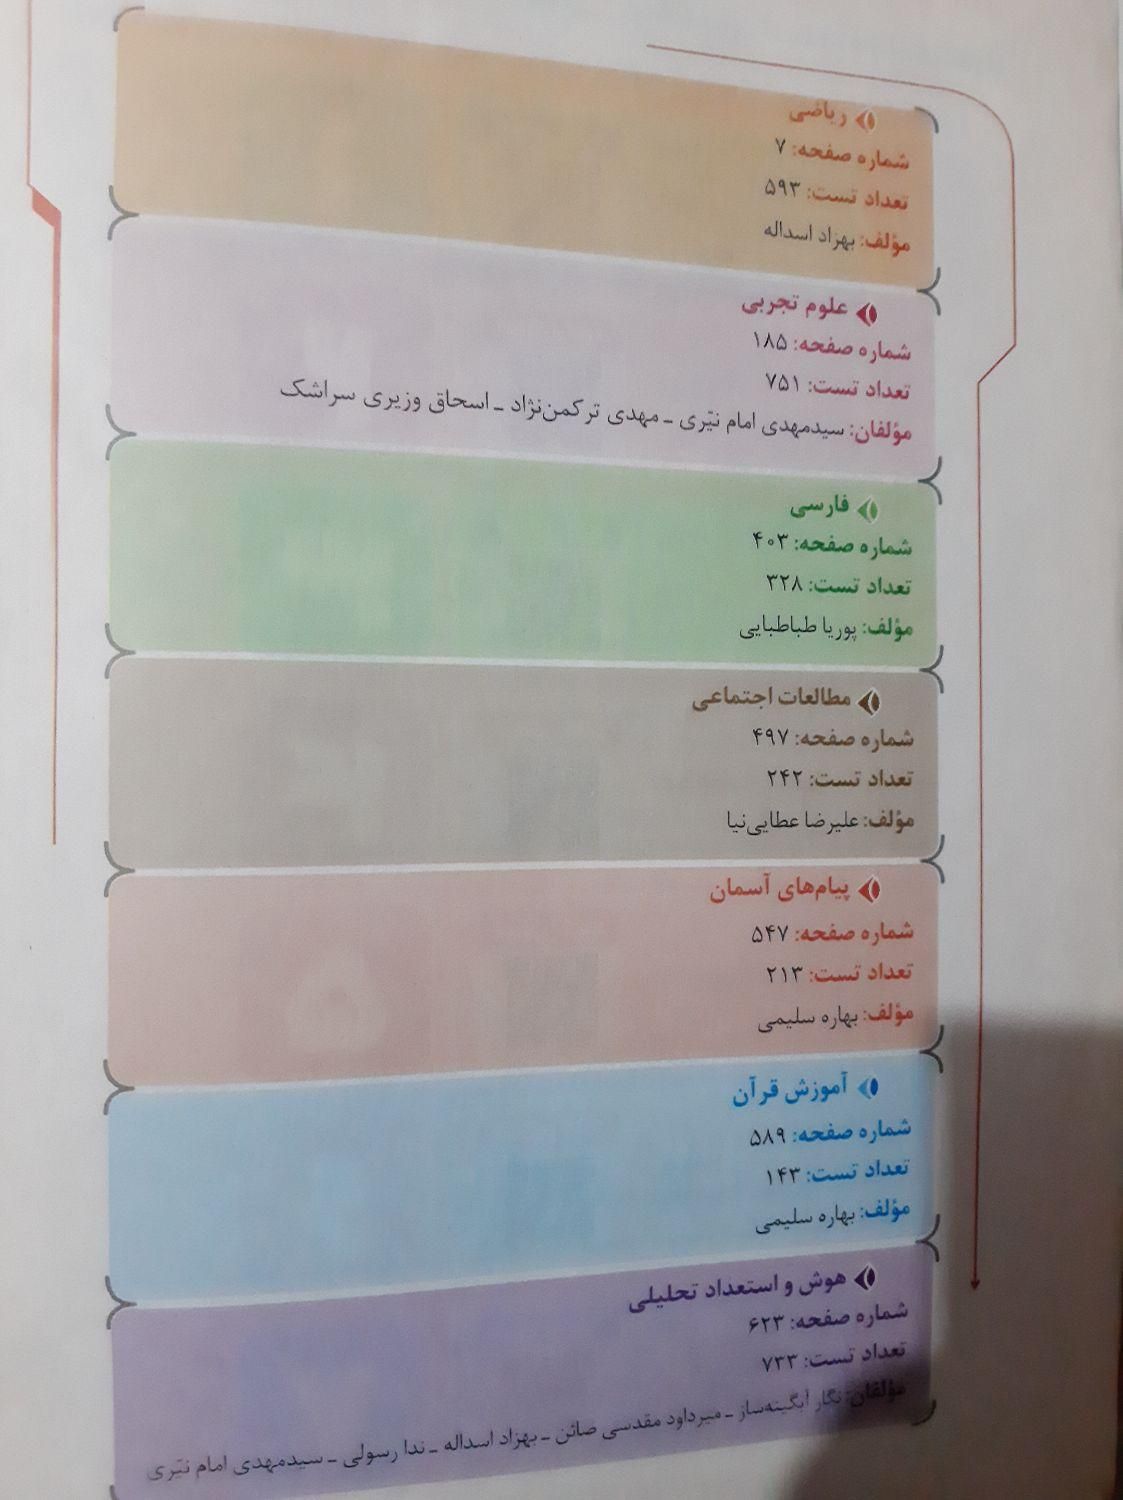 ریاضی
شماره صفحه: ۷
تعداد تست: ۵۹۳
مؤلف: بهزاد اسداله
علوم تجربی
شماره صفحه: ۱۸۵
تعداد تست: ۷۵۱
مؤلفان: سیدمهدی امام نیّری ـ مهدی ترکمن‌نژاد ـ اسحاق وزیری سراشک
فارسی
شماره صفحه: ۴۰۳
تعداد تست: ۳۲۸
مؤلف: پوریا طباطبایی
مطالعات اجتماعی
شماره صفحه: ۴۹۷
تعداد تست: ۲۴۲
مؤلف: علیرضا عطایی‌نیا
پیام‌های آسمان
شماره صفحه: ۵۴۷
تعداد تست: ۲۱۳
مؤلف: بهاره سلیمی
آموزش قرآن
شماره صفحه: ۵۸۹
تعداد تست: ۱۴۳
مؤلف: بهاره سلیمی
هوش و استعداد تحلیلی
شماره صفحه: ۶۲۳
تعداد تست: ۷۳۳
مؤلفان: نگار آبگینه‌ساز ـ میرداود مقدسی صائن ـ بهزاد اسداله ـ ندا رسولی ـ سیدمهدی امام نیّری